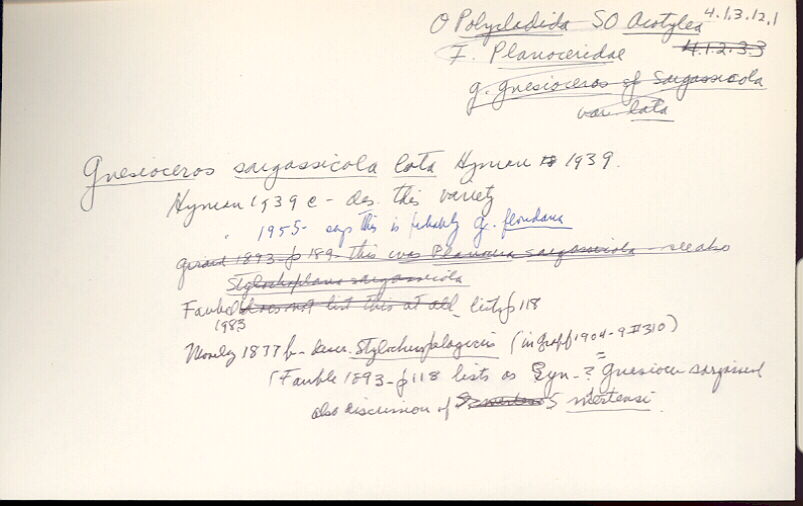 O Polycladida SO Acotylea 4.1.3.12.1
F. Planoceridae 4.1.2.3.3
g. gnesioceros of Sargassicola
var lata
Gnesioceros sargassicola lata Hyman 1939.
Hyman 1939 e - des. this variety
" 1955 - says this is probably G. floridana
Girard 1893 - p 189 this was Planocera sargassicola - see also
Stylochoplana sargassicola
Faubel does not list this at all lists p 118
1983
Mosely 1877 b - descr. Stylochus pelagicus (in Graff 1904-9 #310)
(Fauble 1893 - p 118 lists as Syn. ? = Gnesiocer sargassicol
also discussion of S mertensi.